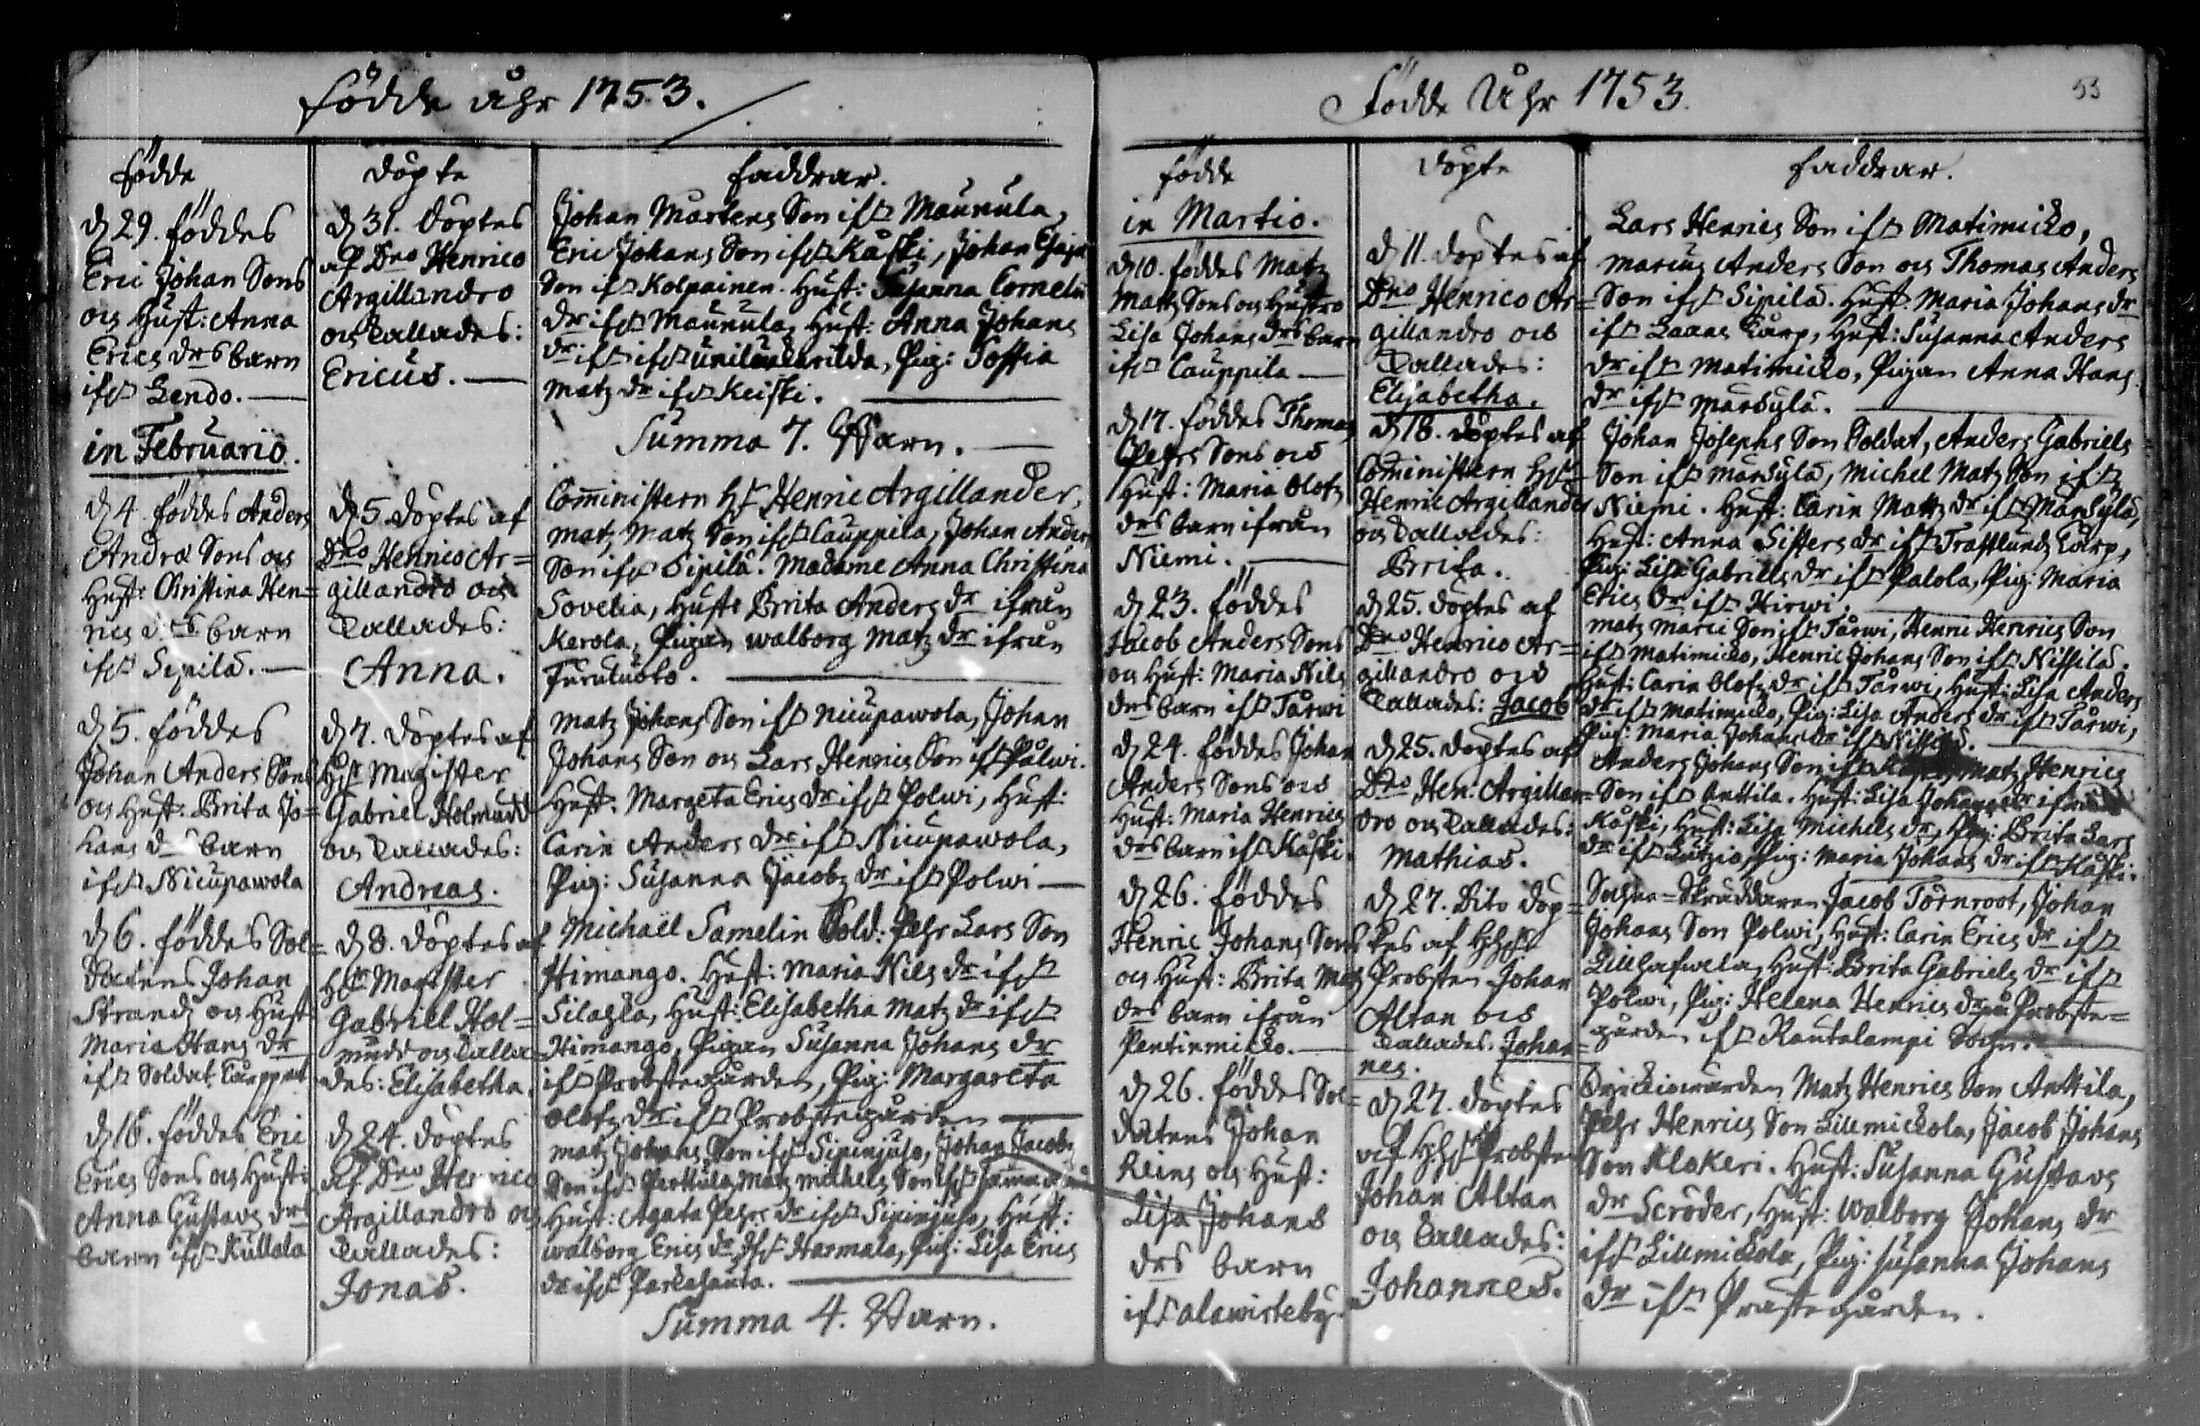 Födde åhr 1753.
Födde
d 29. föddes
Eric Johan Sons
och Hust: Anna
Erics drs barn
ifr Lendo.
in Februario.
d 4. föddes Anders
Andræ Sons och
Hust: Christina Hen=
rics drs barn
ifr Sipilä.
d 5. föddes
Johan Anders Sons
och Hust: Brita Jo=
hans drs barn
ifr Nicupawola
d 6. föddes Sol=
datens Johan
Strands och Hust:
Maria Hans dr
ifr Soldat
d 18. föddes Eric
Erics Sons och Hust:
Anna Gustavs drs
barn ifr Kullala
Döpte
d 31. döptes
af Dno Henrico
Argillandro
och kallades:
Ericus.
d 5. döptes af
Dno Henrico Ar=
gillandro och
kallades:
Anna.
d 7. döptes af
Hr Magister
Gabriel Holmudd
och kallades:
Andreas.
d 8. döptes af
Hr Magister
Gabriel Hol=
mudd och kalla
des: Elisabetha.
d 24. döptes
af Dno Henrico
Argillandro och
kallades:
Jonas.
Faddrar.
Johan Mårtens Son ifr Maunula,
Eric Johans Son ifr Kåski, Johan
Son ifr Kolpainen. Hust: Susanna Corneli
dr ifr Maunula, Hust: Anna Johans
dr ifr Pig: Sophia
Matz dr ifr Keiski.
Summa 7. Barn.
Comministern Hr Henric Argillander,
Matz Matz Son ifr Cauppila, Johan Anders
Son ifr Sipilä. Madame Anna Christina
Sovelia, Hust: Brita Anders dr ifrån
Kerola, Pigan Walborg Matz dr ifrån
Matz Johans Son ifr Nicupawola, Johan
Johans Son och Lars Henrics Son ifr Pålwi.
Hust: Margeta Erics dr ifr Polwi, Hust:
Carin Anders dr ifr Nicupawola,
Pig: Susanna Jacobz dr ifr Polwi
Michaël Samelin Sold: Pehr Lars Son
Himango. Hust: Maria Nils dr ifr
Hust: Elisabetha Matz dr ifr
Himango, Pigan Susanna Johans dr
ifr Probstegården, Pig: Margareta
Olofz dr ifr Probstegården
Matz Johans Son ifr Sipinjuso, Johan Jacobs
Son ifr Perttula, Matz Michels Son ifr
Hust: Agata Pehrs dr ifr Sipinjuso, Hust:
Walborg Erics dr ifr Harmala, Pig: Lisa Erics
dr ifr
Summa 4. Barn.
Födde Åhr 1753.
53
Födde
in Martio.
d 10. föddes Matz
Matz Sons och Hustro
Lisa Johans drs barn
ifr Cauppila
d 17. föddes Thomas
Pehrs Sons och
Hust: Maria Olofz
drs barn ifrån
Niemi.
d 23. föddes
Jacob Anders Sons
och Hust: Maria Nils
drs barn ifr Tårwi
d 24. föddes Johan
Anders Sons och
Hust: Maria Henrics
drs barn ifr Kåski.
d 26. föddes
Henric Johans Sons
och Hust: Brita Matz
drs barn ifrån
Pentinmicko.
d 26. föddes Sol=
datens Johan
Reins och Hust:
Lisa Johans
drs barn
ifr alawirteby.
Döpte
d 11. döptes af
Dno Henrico Ar=
gillandro och
kallades:
Elisabetha.
d 18. döptes af
Comministern Hr
Henric Argillander
och kallades:
Brita.
d 25. döptes af
Dno Henrico Ar=
gillandro och
kallades: Jacob
d 25. döptes af
Dno Hen: Argillan=
dro och kallades:
Mathias.
d 27. dito döp=
tes af
Probsten Johan
Altan och
kallades. Johan=
nes.
d 27. döptes
af Probsten
Johan Altan
och kallades:
Johannes.
Faddrar.
Lars Henrics Son ifr Matimicko,
Marcus Anders Son och Thomas Anders
Son ifr Sipilä. Hust: Maria Johans dr
ifr Hust: Susanna Anders
dr ifr Matimicko, Pigan Anna Hans
dr ifr Markylä.
Johan Josephs Son Soldat, Anders Gabriels
Son ifr Markylä, Michel Matz Son ifr
Niemi. Hust: Carin Matz dr ifr Markylä,
Hust: Anna dr ifr
Pig: Lisa Gabriels dr ifr Palola, Pig: Maria
Erics dr ifr Hirwi.
Matz Marci Son ifr Tårwi, Henric Henrics Son
ifr Matimicko, Henric Johans Son ifr Nissilä.
Hust: Carin Olofz dr ifr Tårwi, Hust: Lisa Anders
dr ifr Matimicko, Pig: Lisa Anders dr ifr Tårwi,
Pig: Maria Johans dr ifr Nissilä.
Anders Johans Son ifr Matz Henrics
Son ifr Anttila. Hust: Lisa Johans dr ifrån
Kåski, Hust: Lisa Michels dr, Pig: Brita Lars
dr ifr Pig: Maria Johans dr ifr Kåski.
Sochne=Skräddaren Jacob Törnroot, Johan
Johans Son Polwi, Hust: Carin Erics dr ifr
Hust: Brita Gabriels dr ifr
Polwi, Pig: Helena Henrics dr på Probste=
gården ifr Rautalampi Sochn.
Matz Henrics Son Anttila,
Pehr Henrics Son Lillmickola, Jacob Johans
Son Klokeri. Hust: Susanna Gustavs
dr Scröder, Hust: Walborg Johans dr
ifr Lillmickola, Pig: Susanna Johans
dr ifr Prästegården.